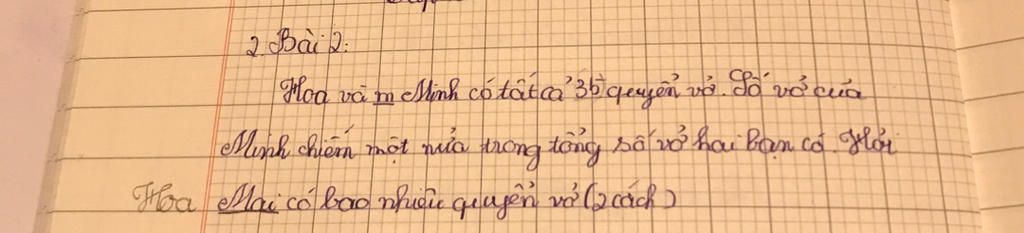 2. Bài 2:
Hoa và m Minh có tất cả 36 quyển vở. Số vở của
Minh chiếm một nửa trong tổng số vở hai bạn có. Hỏi
Hoa Mai có bao nhiêu quyển vở (2 cách)